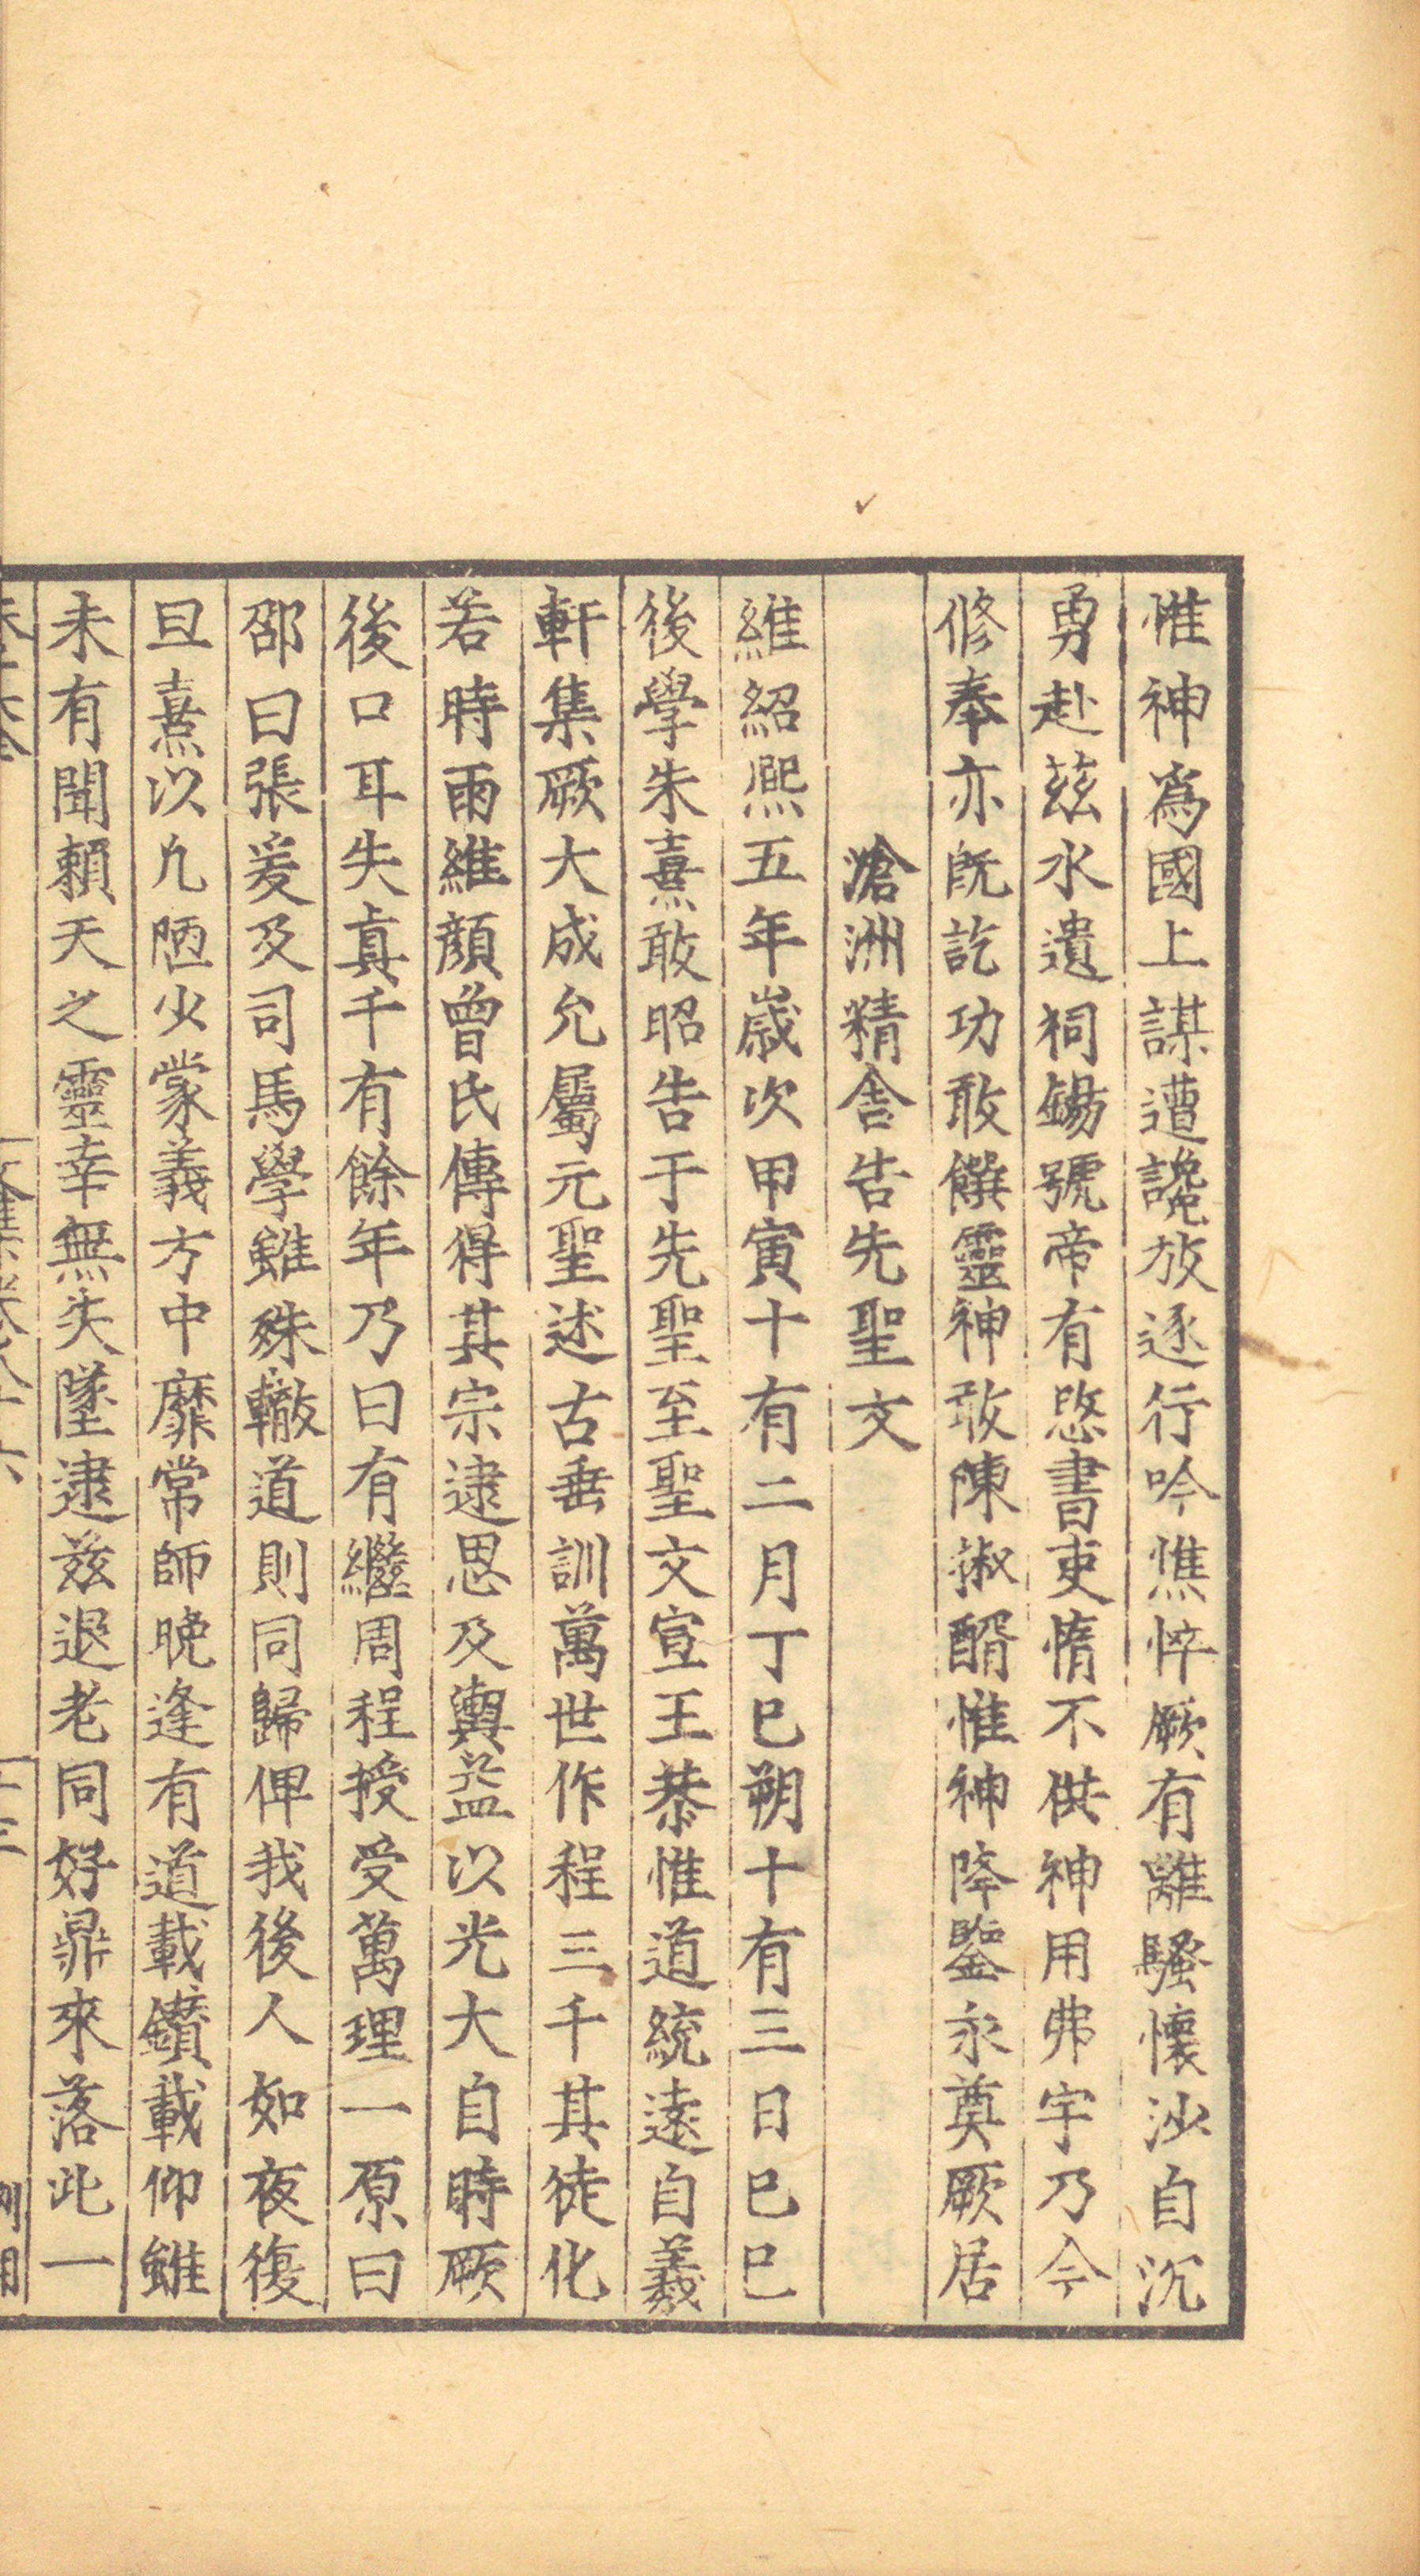 惟神爲國上謀遭讒放逐行吟憔悴厥有離騷懷沙自沉
勇赴茲水遺祠錫號帝有愍書吏惰不供神用弗宇乃今
修奉亦旣訖功敢饌靈神敢陳椒醑惟神降鑒永奠厥居
滄洲精舍告先聖文
維紹熙五年歲次甲寅十有二月丁巳朔十有三日己巳
後學朱熹敢昭告于先聖至聖文宣王恭惟道統遠自羲
軒集厥大成允屬元聖述古垂訓萬世作程三千其徒化
若時雨維顏曾氏傳得其宗逮思及輿益以光大自時厥
後口耳失眞千有餘年乃曰有繼周程授受萬理一原曰
邵曰張爰及司馬學雖殊轍道則同歸俾我後人如夜復
旦熹以凡陋少蒙義方中靡常師晚逢有道載鑽載仰雖
未有聞賴天之靈幸無失墜逮茲退老同好鼎來落此一